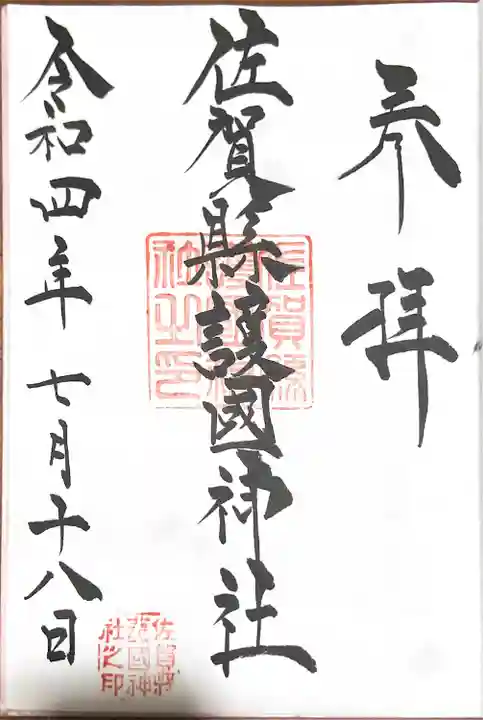 奉拝
佐賀縣護國神社
令和四年七月十八日
佐賀縣護國神社之印
佐賀縣護國神社之印